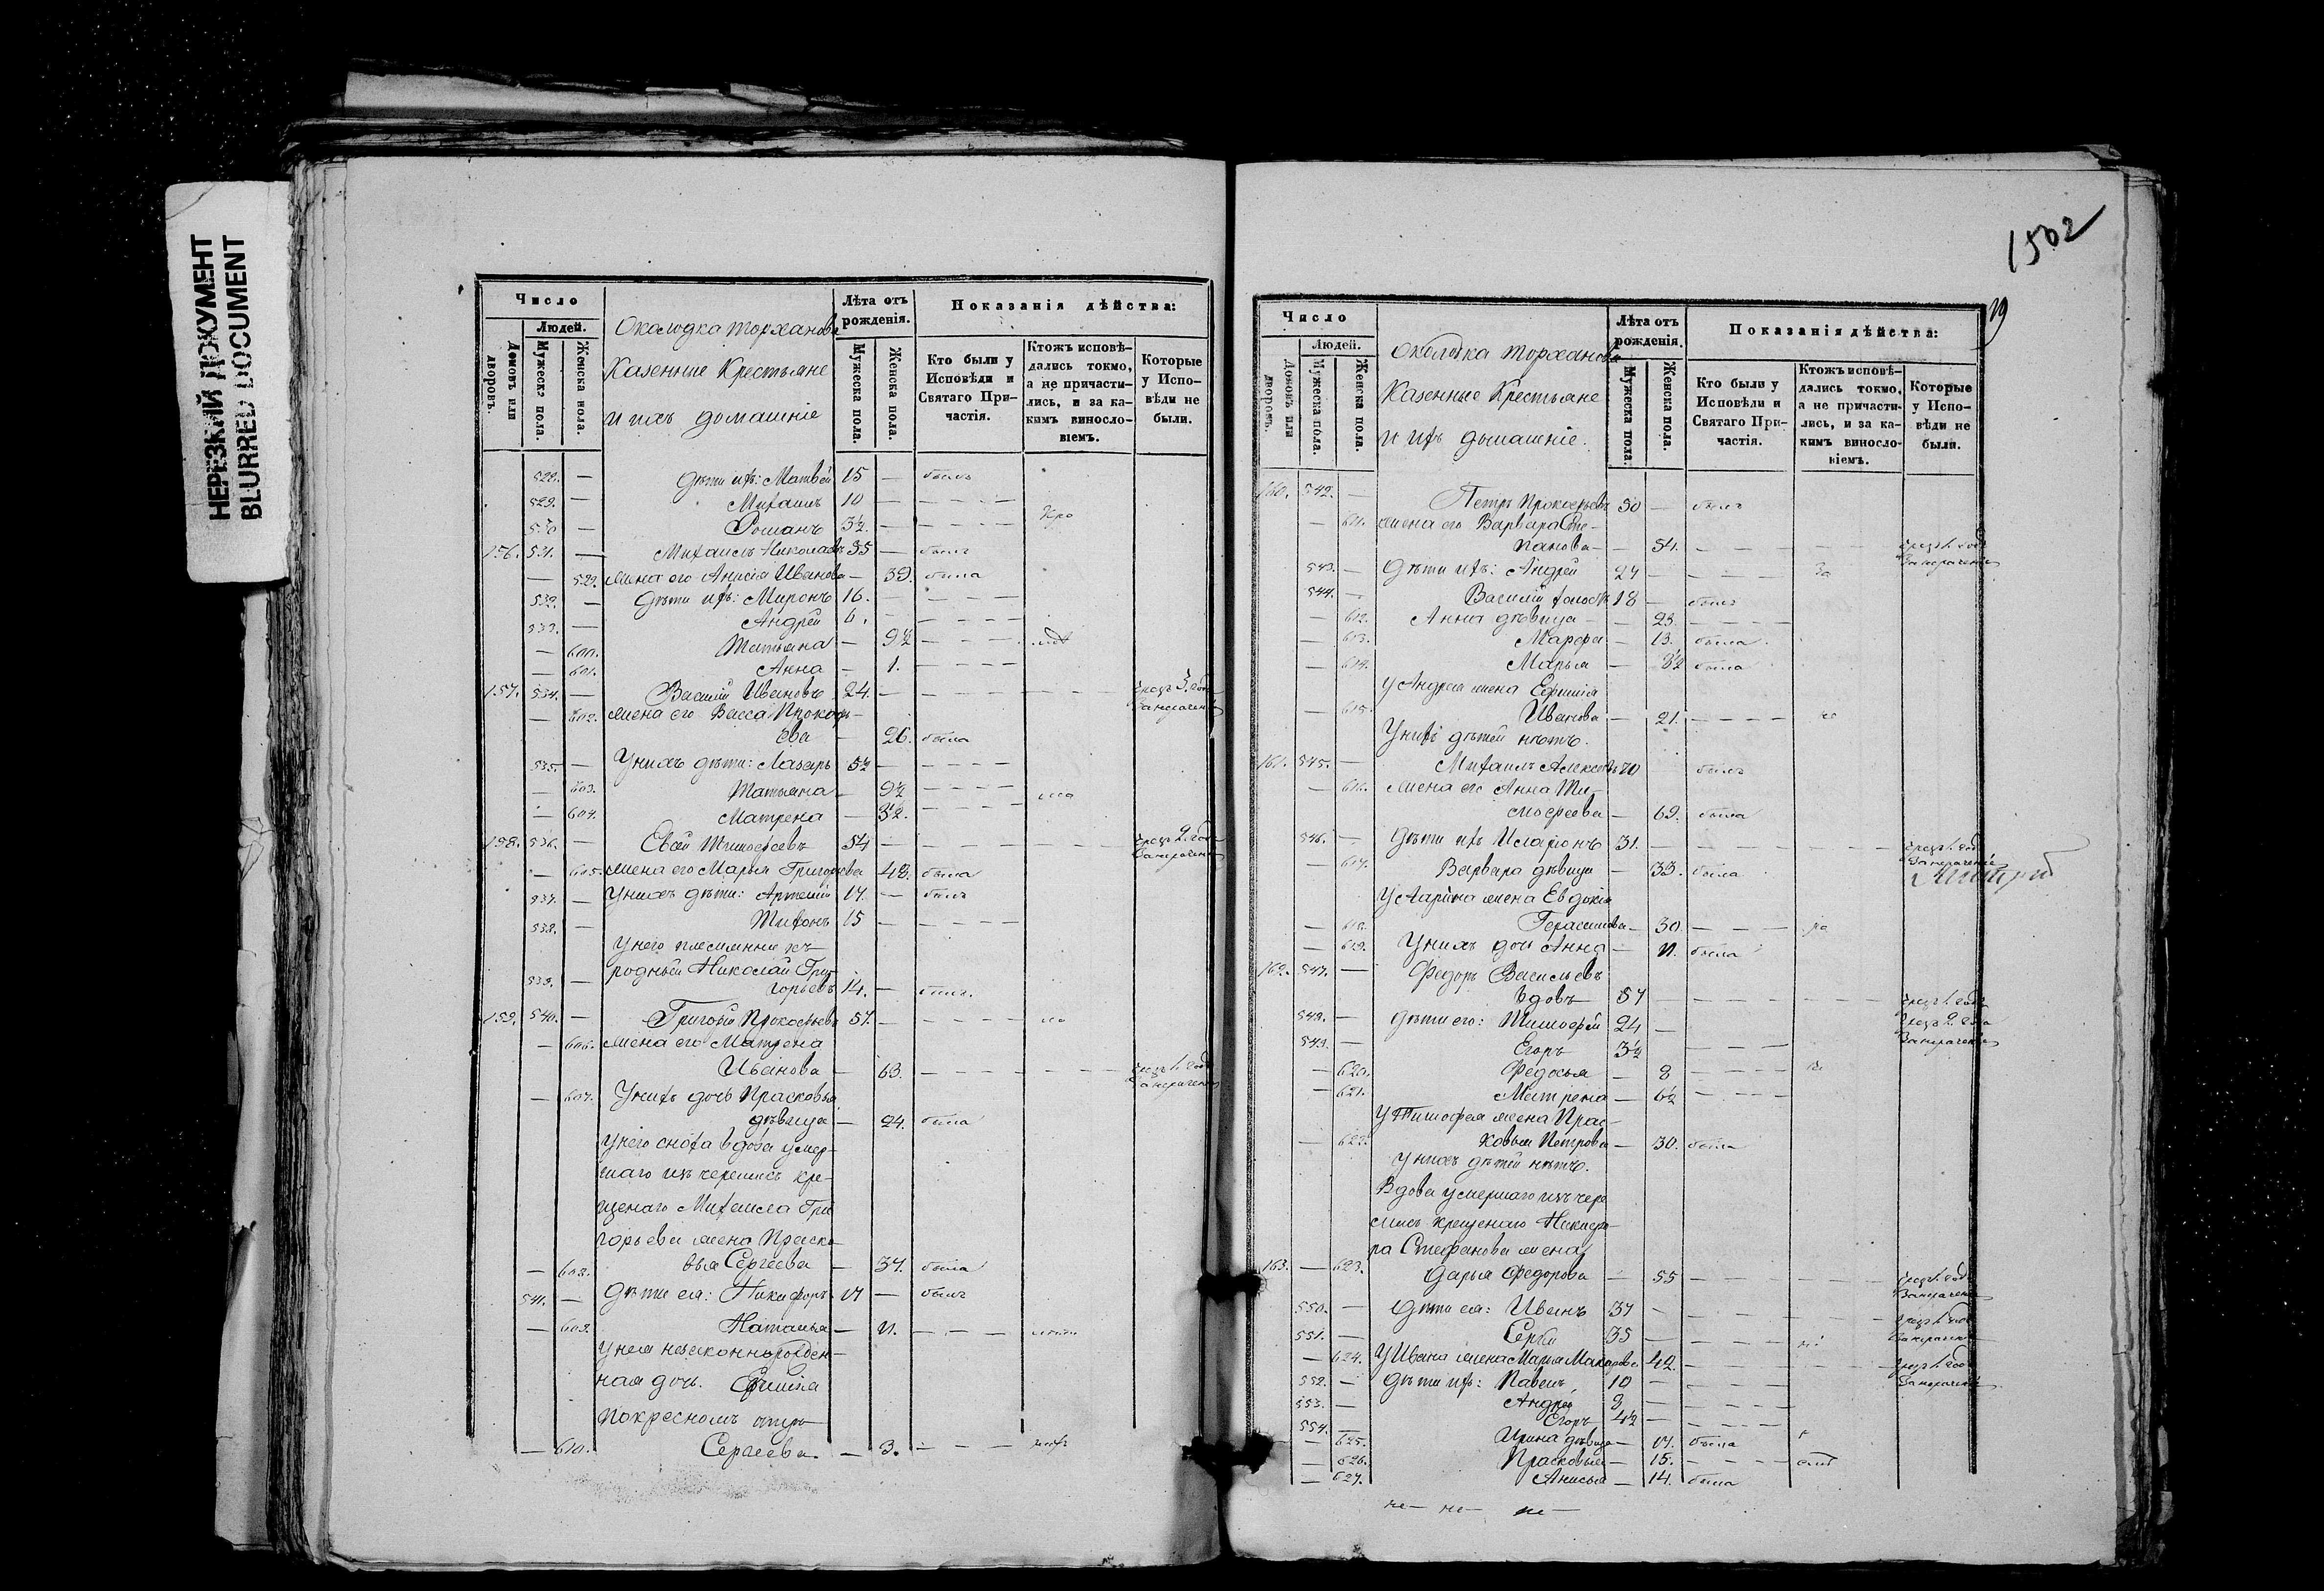 НЕРЕЗКИЙ ДОКУМЕНТ
BLURRED DOCUMENT
Число
Людей.
Домовъ или дворовъ.
Мужеска пола.
Женска пола.
Околодка Торханова
Казенные Крестьяне
и ихъ домашніе
Лѣта отъ рожденія.
Мужеска пола.
Женска пола.
Показанія дѣйства:
Кто были у Исповѣди и Святаго Причастія.
Ктожъ исповѣдались токмо, а не причастились, и за какимъ винословіемъ.
Которые у Исповѣди не были.
528. — дѣти ихъ: Матвѣй 15 — былъ
529. — Михаилъ 10 — — — —
530 — Романъ 3½. — — — —
156. 531. — Михаилъ Николаевъ 35 — былъ
— 599. жена его Анисія Иванова — 39. была
532. — дѣти ихъ: Миронъ 16. — — — —
533. — Андрей 6. — — — —
— 600. Татьяна — 9½ — — — —
— 601. Анна — 1. — — — —
157. 534. — Василій Ивановъ 24. — — — — — — чрезъ 3. года
— 602. жена его Васса Прокофь-
ева — 26. была
535. — У нихъ дѣти: Лазарь 5½ — — — —
— 603. Татьяна — 9½ — — — —
— 604. Матрена — 3½. — — — —
158. 536. — Евсѣй Тимофеевъ 54 — — — — — — чрезъ 2. года
— 605. жена его Марья Григорьева 48. была
537. — У нихъ дѣти: Артемій 17. — былъ
538. — Тихонъ 15 — — — —
У него племянникъ
родный Николай Гри-
539. — горьевъ 14. — былъ.
159. 540. — Григорій Прокофьевъ 57. — — — — —
— 606. жена его Матрена
Иванова — 63. — — — — — — чрезъ 1. годъ
— 607. У нихъ дочь Прасковья
дѣвица — 24. была
У него сноха вдова умер-
шаго изъ черемисъ кре-
щенаго Михаила Гри-
горьева жена Праско-
— 608. вья Сергеева — 37. была
541. — Дѣти ея: Никифоръ 17 — былъ
— 609. Наталья — 11. — — —
У нея незаконнорожден-
ная дочь. Ефимія
по кресномъ отцѣ
— 610. Сергеева. — 3. — — —
1502
79
Число
Людей.
Домовъ или дворовъ.
Мужеска пола.
Женска пола.
Околодка Торханова
Казенные Крестьяне
и ихъ домашніе.
Лѣта отъ рожденія.
Мужеска пола.
Женска пола.
Показанія дѣйства:
Кто были у Исповѣди и Святаго Причастія.
Ктожъ исповѣдались токмо, а не причастились, и за какимъ винословіемъ.
Которые у Исповѣди не были.
160. 542. — Петръ Прокофьевъ 50 — былъ
— 611. жена его Варвара Сте-
панова — 54. — — — — — чрезъ 1. годъ
543. — Дѣти ихъ: Андрей 24 — — — —
544. — Василій холостъ 18 — былъ
— 612. Анна дѣвица — 23. — — — —
— 613. Марфа — 13. была
— 614. Марья — 8½ была
У Андрея жена Ефимія
— 615. Иванова — 21. — — — —
У нихъ дѣтей нѣтъ.
161. 545. — Михаилъ Алексѣевъ 70 былъ
— 616. жена его Анна Ти-
мофеева — 69. была
546. — Дѣти ихъ Иларіонъ 31. — — — — — — чрезъ 1. годъ
— 617. Варвара дѣвица — 33. была
У Ларіона жена Евдокія
— 618. Герасимова — 30. — — —
— 619. У нихъ дочь Анна — 11. была
162. 547. — Федоръ Васильевъ
вдовъ 57 — — — — — — чрезъ 1. годъ
548. — Дѣти его: Тимофей 24 — чрезъ 2. года
549. — Егоръ 3½ — — —
— 620. Федосья — 8 — — — —
— 621. Матрена — 6½ — — — —
У Тимофея жена Прас-
— 622. ковья Петрова — 30. была
У нихъ дѣтей нѣтъ.
Вдова умершаго изъ чере-
мисъ крещенаго Никифо-
ра Степанова жена
163. — 623. Дарья Федорова — 55 — — — — — чрезъ 1. годъ
550. — Дѣти ея: Иванъ 37 — — — — — — чрезъ 1. годъ
551. — Сергѣй 35 — — —
— 624. У Ивана жена Марья Макарова 42. — — — — — чрезъ 1. годъ
552. — Дѣти ихъ: Павелъ 10 — — — —
553. — Андрей 8 — — — —
554. — Егоръ 4½ — — — —
— 625. Ирина дѣвица — 17. была
— 626. Прасковья — 15. — — — —
— 627. Анисья — 14. была